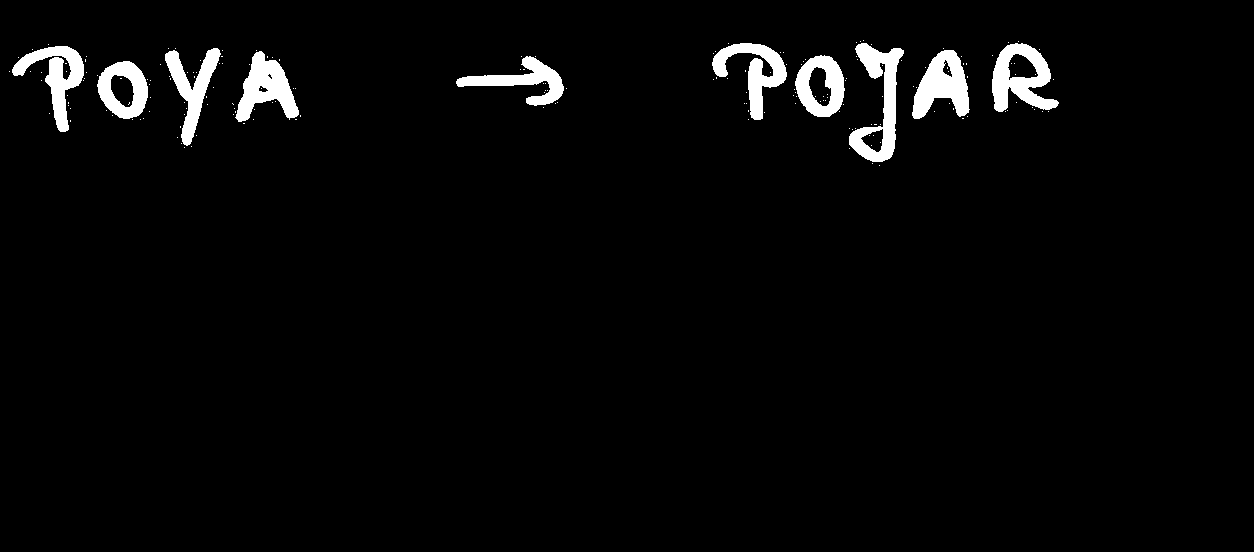 POYA → POJAR